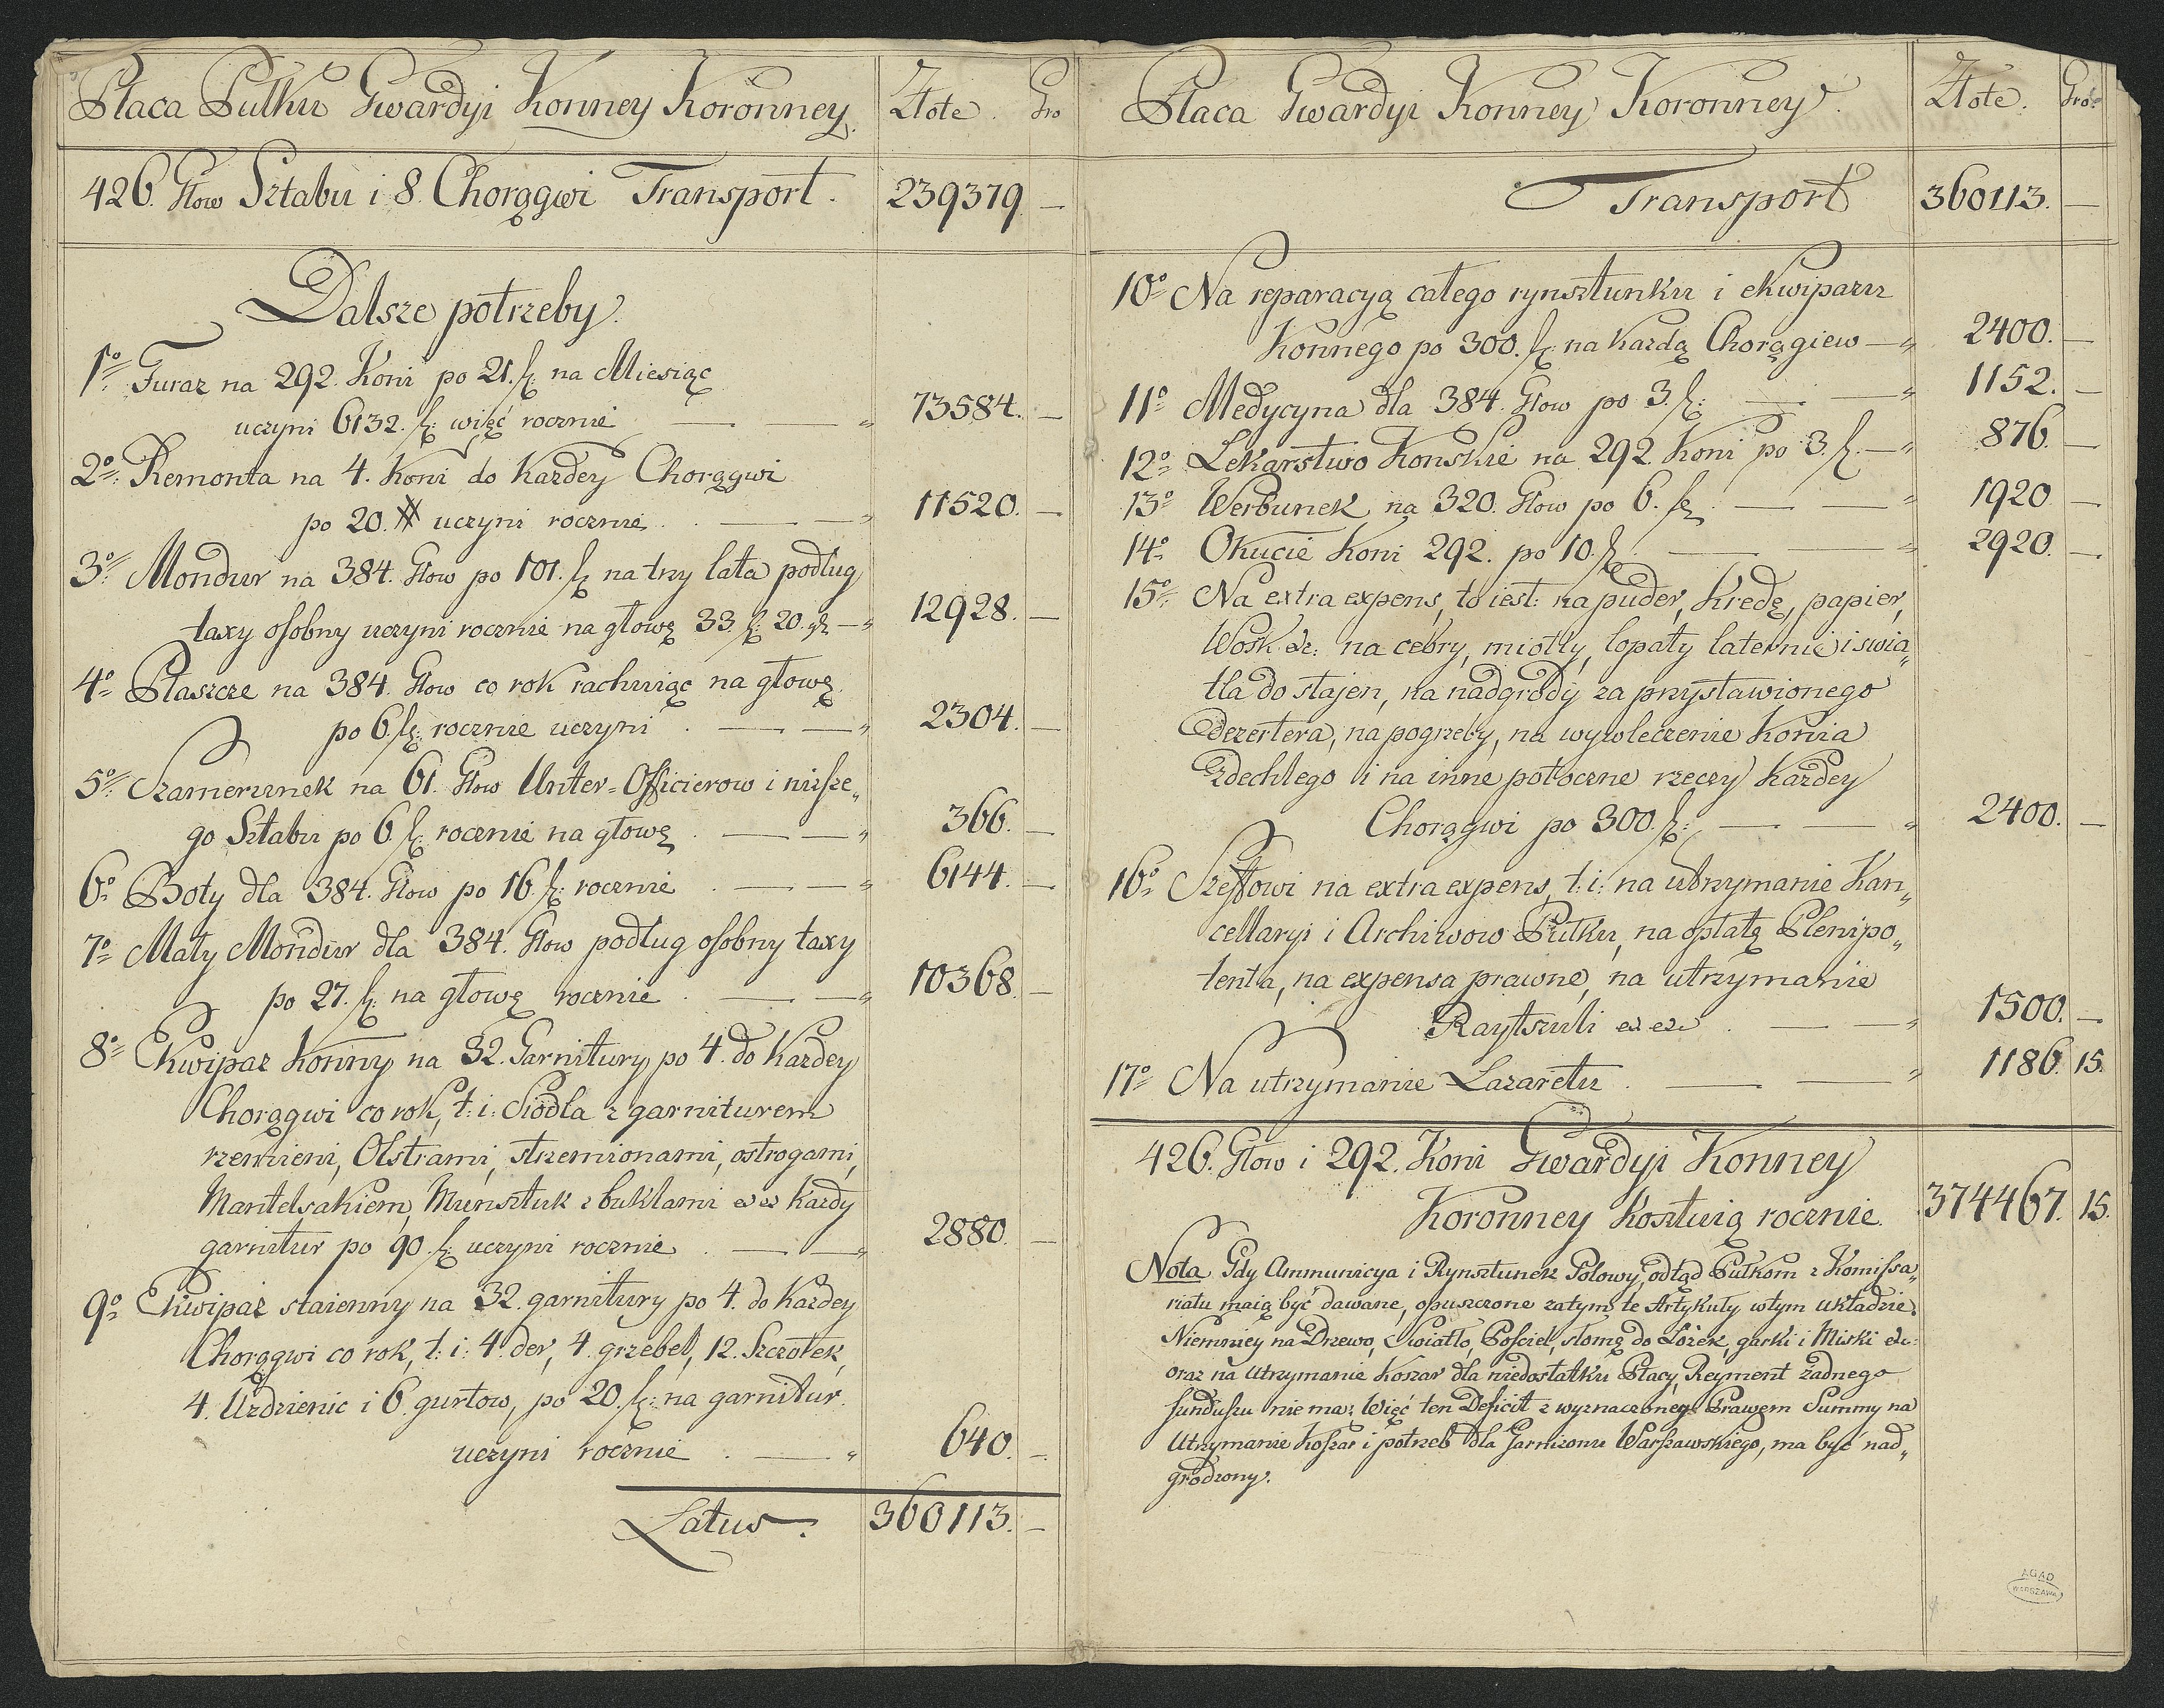 Płaca Pułku Gwardyi Konney Koronney. Złote. Gro
426. Głow Sztabu i 8. Chorągwi Transport. 239379. —
Dalsze potrzeby.
1º Furaz na 292. Koni po 21. fl: na Miesiąc
uczyni 6132. fl: więć rocznie — — „ 73584. —
2º Remonta na 4. Koni do Każdey Chorągwi
po 20. ## uczyni rocznie. — — „ 11520. —
3º Mondur na 384. Głow po 101. fl: na trzy lata podług
taxy osobny uczyni rocznie na głowę 33. fl: 20. gr — „ 12928. —
4º Płaszcze na 384. Głow co rok rachuiąc na głowę
po 6. fl: rocznie uczyni . — — „ 2304. —
5º Szamerunek na 61. Głow Unter-Officierow i niższe„
go Sztabu po 6. fl: rocznie na głowę . — — „ 366. —
6º Boty dla 384. Głow po 16. fl: rocznie . — — „ 6144. —
7º Mały Mondur dla 384. Głow podług osobny taxy
po 27. fl: na głowę rocznie . — — „ 10368. —
8º Ekwipaz Konny na 32. Garnitury po 4. do Każdey
Chorągwi co rok, t: i: Siodła z garniturem
rzemieni, Olstrami, strzemionami, ostrogami,
Mantelsakiem, Munsztuk z buklami &c &c Każdy
garnitur po 90. fl: uczyni rocznie . — — „ 2880. —
9º Ekwipaż staienny na 32. garnitury po 4. do Każdey
Chorągwi co rok, t: i: 4. der, 4. grzebeł, 12. Szczotek,
4. Uzdzienic i 6. gurtow, po 20. fl: na garnitur.
uczyni rocznie . — „ 640. —
Latus. 360113. —
Płaca Gwardyi Konney Koronney. Złote. Gro:
Transport 360113. —
10º Na reparacyą całego rynsztunku i ekwipazu
Konnego po 300. fl: na Każdą Chorągiew — „ 2400. —
11º Medycyna dla 384. Głow po 3. fl: — — „ 1152. —
12º Lekarstwo Konskie na 292. Koni po 3. fl. — „ 876. —
13º Werbunek na 320. Głow po 6. fl: — — „ 1920 —
14º Okucie Koni 292. po 10. fl: — — „ 2920. —
15º Na extra expens, to iest: na puder, Kredę, papier,
Wosk &c: na cebry, miotły, lopaty laternie i swia„
tla do stajen, na nadgrody za przystawionego
dezertera, na pogrzeby, na wywleczenie Konia
zdechlego i na inne potoczne rzeczy Każdey
Chorągwi po 300. fl: — — „ 2400. —
16º Szeffowi na extra expens, t: i: na utrzymanie Kan„
cellaryi i Archiwow Pułku, na opłatę Plenipo„
tenta, na expensa prawne, na utrzymanie
Raytszuli &c &c . — — „ 1500. —
17º Na utrzymanie Lazaretu . — — „ 1186. 15.
426. Głow i 292. Koni Gwardyi Konney
Koronney Kosztuią rocznie. 374467. 15.
Nota Gdy Ammunicya i Rynsztunek Polowy, odtąd Pułkom z Komissa„
riatu maią być dawane, opuszczone zatym te Artykuły wtym układzie.
Niemniey na Drzewo, Swiatło, Posciel, słomę do Łóżek, garki i Miski &c:
oraz na utrzymanie Koszar dla niedostatku Płacy, Reyment żadnego
funduszu nie ma; Więć ten Deficit z wyznaczoney Prawem Summy na
Utrzymanie Koszar i potrzeb dla Garnizonu Warszawskiego, ma być nad„
grodzony.
AGAD
WARSZAWA